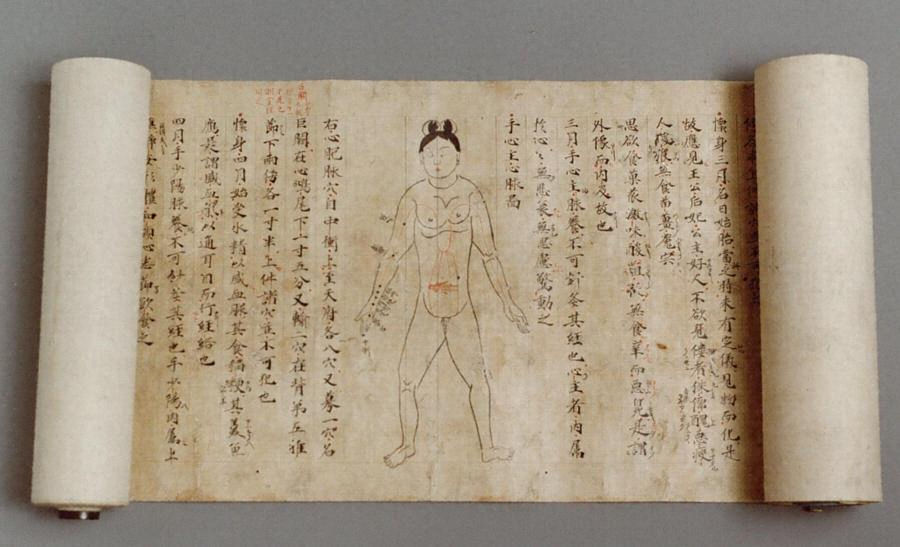 懷身三月名曰始胎當之時未有定儀見物而化是
故應見王公后妃公主好人不欲見僂者侏儒醜惡瘦
人猿猴無食苗薑兔完
思欲食菓瓜激味酸菹瓜無食辛而惡臭是謂
外像而內及故也
三月手心主脈養不可針灸其經也心主者內屬
於心々無悲哀無思慮驚動之
手心主心脈圖
右心胞脈穴自中衝上至天府各八穴又募一穴名
巨闕在心鳩尾下一寸五分又輸一穴在背第五椎
節下兩傍各一寸半上件諸穴並不可犯也
懷身四月始受水精以盛血脈其食稻粳其羹魚
應是謂盛血氣以通耳目而行經絡也
四月手少陽脈養不可針灸其經也手少陽內屬上
焦靜安形體和順心志節飲食之